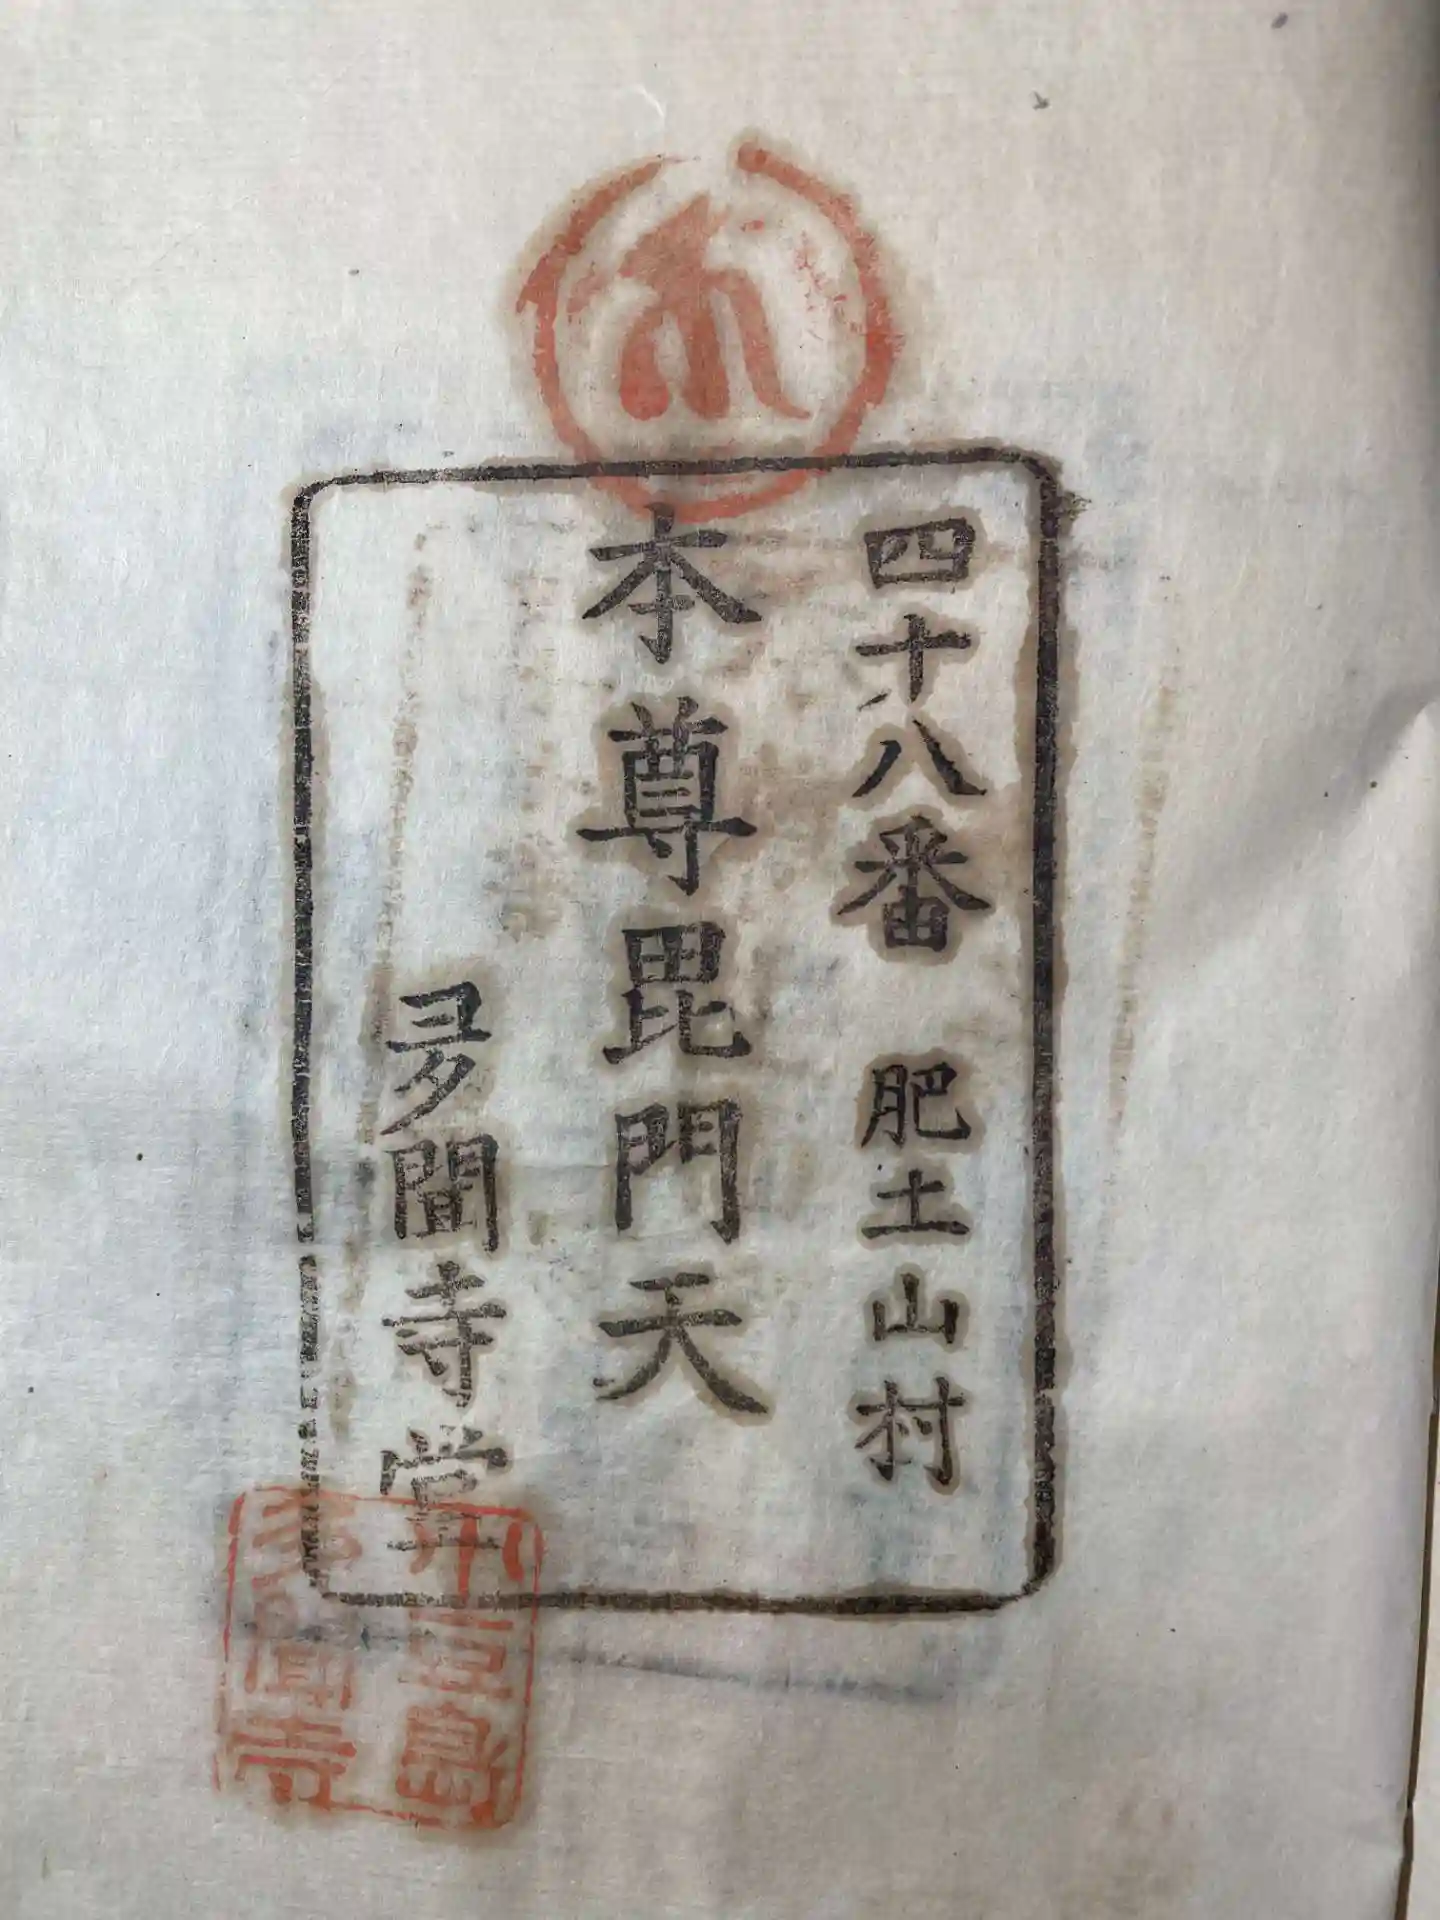 四十八番 肥土山村
本尊毘門天
多聞寺堂
小豆島
多聞寺